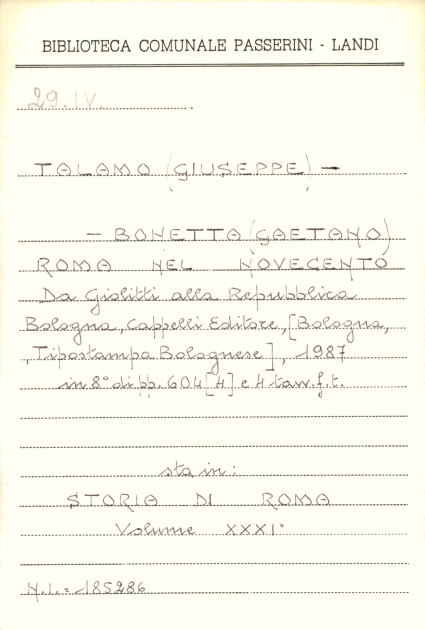 BIBLIOTECA COMUNALE PASSERINI - LANDI
29.IV.
TALAMO (GIUSEPPE) —
— BONETTA (GAETANO)
ROMA NEL NOVECENTO
Da Giolitti alla Repubblica
Bologna, Cappelli Editore, [Bologna,
, Tipostampa Bolognese], 1987
in 8° di pp. 604 [4] e 4 tavv. f. t.
sta in:
STORIA DI ROMA
Volume XXXI°
N.I.= 185286